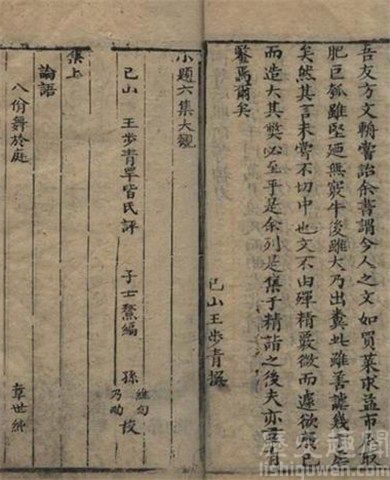 吾友方文輈嘗詒余書謂今人之文如買菜求益市瓜取
肥巨瓠雖堅廼無竅牛後雖大乃出糞此雖善謔幾之
矣然其言未嘗不切中也文不由殫精覈微而遽欲
而造大其弊必至乎是余列是集于精詣之後夫亦有
鑒焉爾矣
已山王步青撰
小題六集大觀
已山 王步青罕皆氏評 子士鰲編 孫 維甸 乃 校
集上
論語
八佾舞於庭 章世純
歷史趣聞
lishiquwen.com